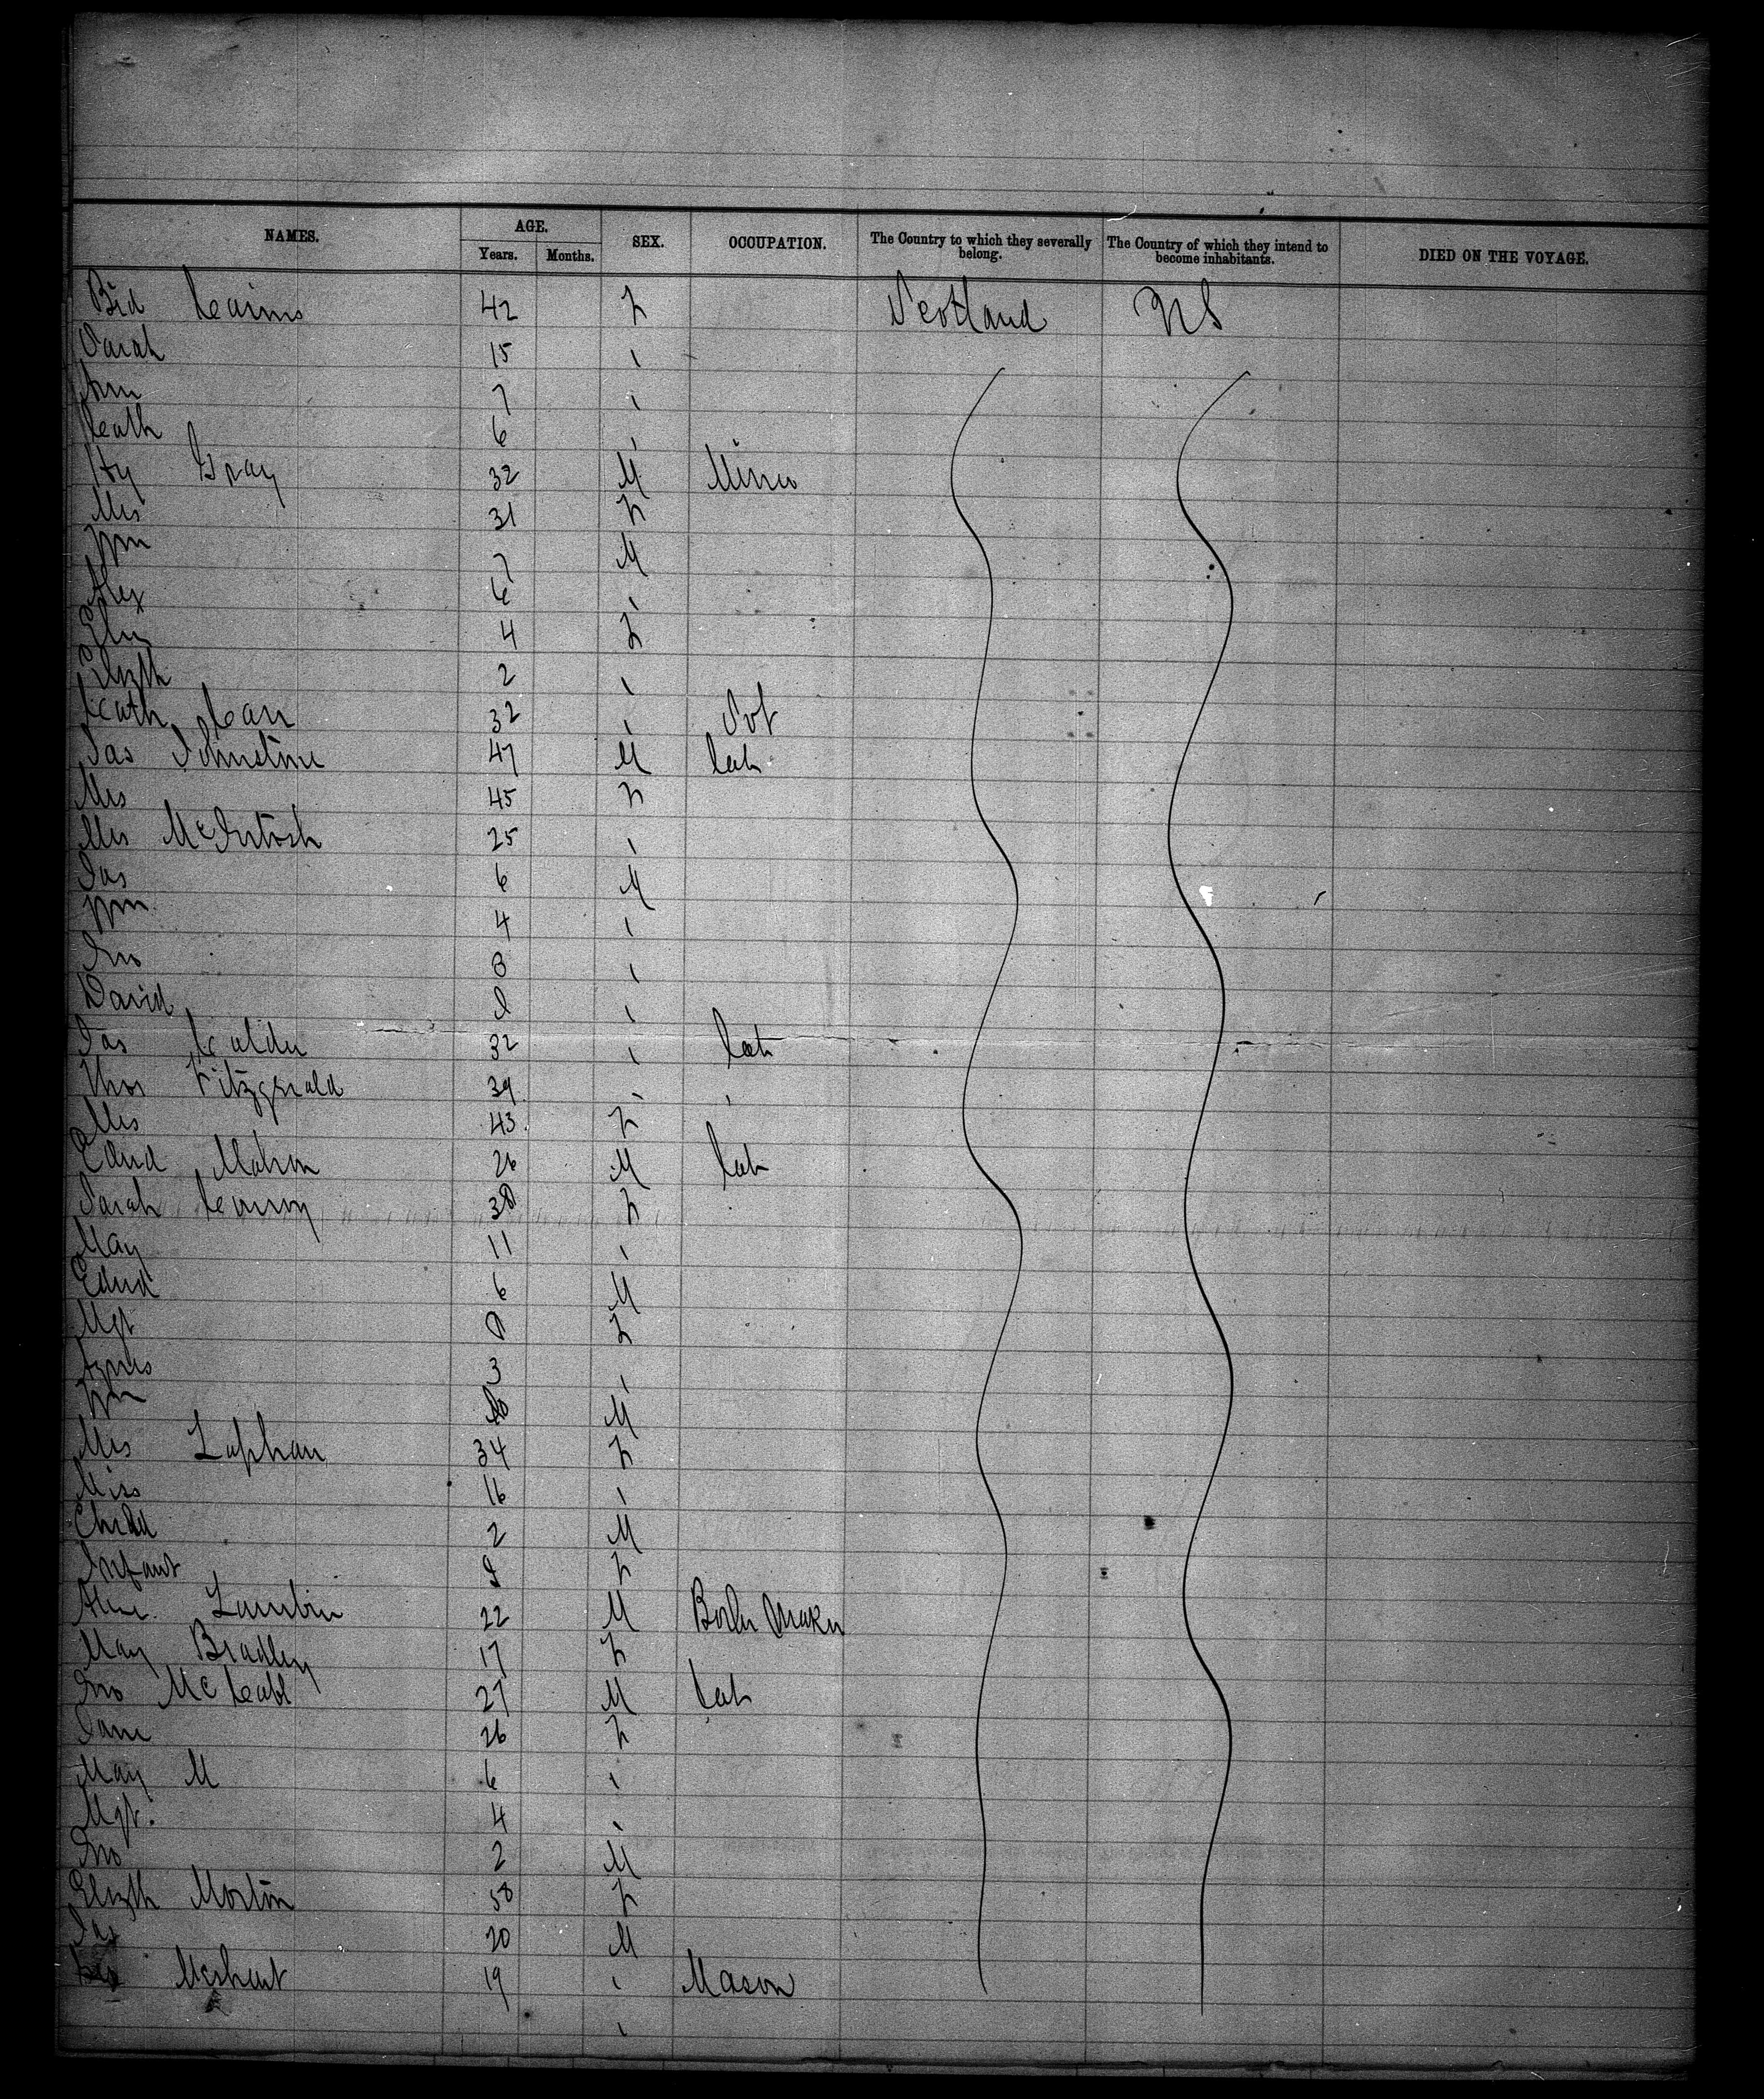 NAMES. AGE. SEX. OCCUPATION. The Country to which they severally belong. The Country of which they intend to become inhabitants. DIED ON THE VOYAGE.
Years. Months.
Bid Cairns 42 F Scotland US
Sarah 15 "
Ann 7 "
Cath 6 "
Hy Gray 32 M Miner
Mrs 31 F
Wm 7 M
Alex 6 "
Ellen 4 F
Elizth 2 "
Cath Carr 32 " Svt
Jas Johnstone 47 M Lab
Mrs 45 F
Mrs McIntosh 25 "
Jas 6 M
Wm 4 "
Jno 3 "
David "
Jas Calder 32 " Lab
Thos Fitzgerald 39 " "
Mrs 43 F
Edwd Mahon 26 M Lab
Sarah 38 F
May 11 "
Edwd 6 M
Mgt F
Agnes 3 "
Wm M
Mrs Laphan 34 F
Miss 16 "
Child 2 M
Infant F
22 M Boiler Maker
May Bradley 17 F
Jno McCabe 27 M Lab
Jane 26 F
May M 6 "
Mgt. 4 "
Jno 2 M
Elizth Morton 58 F
Jas 20 M
19 " Mason
"